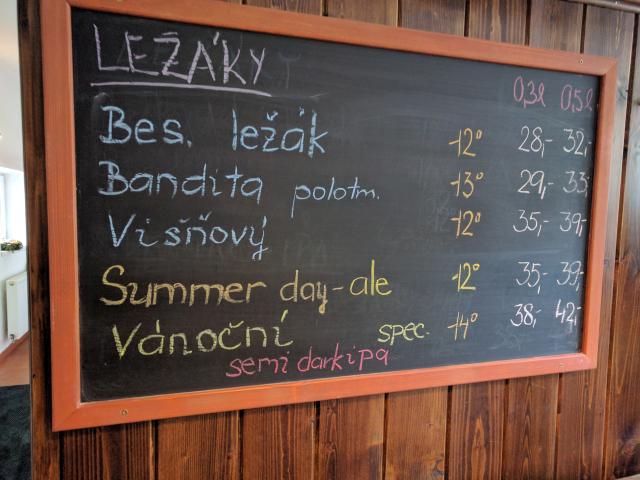 LEŽÁKY
0,3l 0,5l
Bes. ležák 12° 28,- 32,-
Bandita polotm. 13° 29,- 33,-
Višňový 12° 35,- 39,-
Summer day-ale 12° 35,- 39,-
Vánoční spec. 14° 38,- 42,-
semi dark ipa